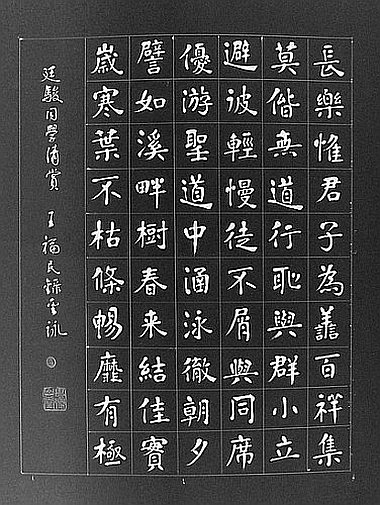 長樂惟君子為善百祥集
莫偕無道行恥與群小立
避彼輕慢徒不屑與同席
優游聖道中涵泳徹朝夕
譬如溪畔樹春来結佳實
歲寒葉不枯條暢靡有極
廷駿同學清賞 王福民錄聖詠